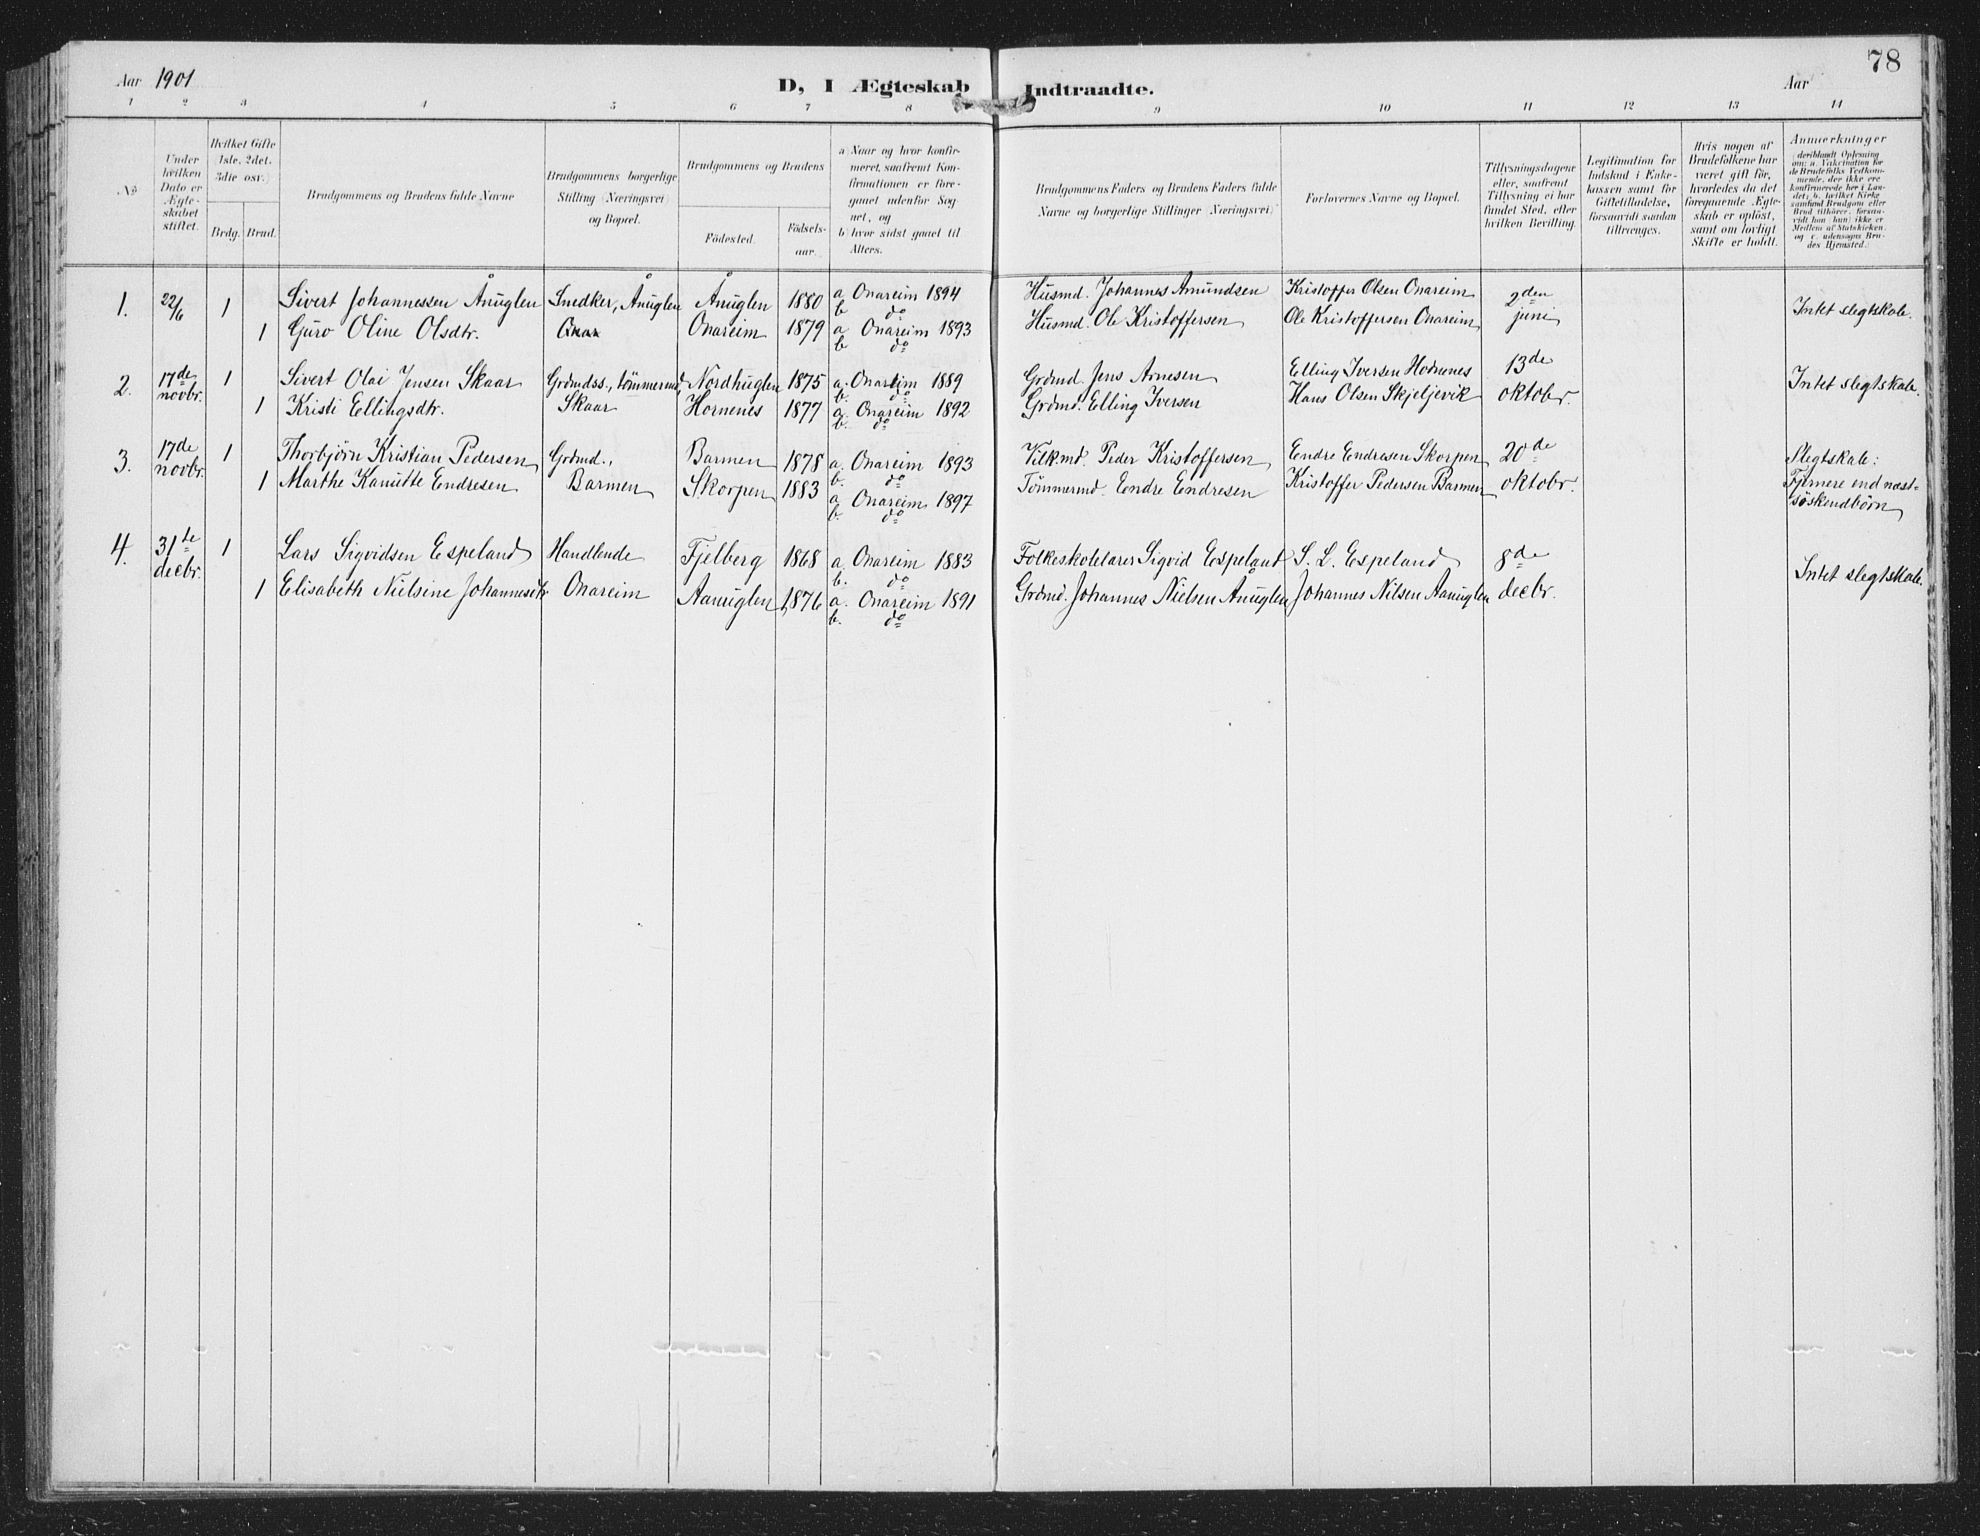 78
Aar 1901
D, I Ægteskab Indtraadte.
Aar
1 2 3 4 5 6 7 8 9 10 11 12 13 14
No
Under hvilken Dato er Ægteskabet stiftet.
Hvilket Gifte (1ste, 2det, 3die osv.)
Brdg. Brud.
Brudgommens og Brudens fulde Navne
Brudgommens borgerlige Stilling (Næringsvei) og Bopæl.
Brudgommens og Brudens
Födested. Födselsaar.
a) Naar og hvor konfirmeret, saafremt Konfirmationen er foregaaet udenfor Sognet, og
b) hvor sidst gaaet til Alters.
Brudgommens Faders og Brudens Faders fulde Navne og borgerlige Stillinger (Næringsvei)
Forlovernes Navne og Bopæl.
Tillysningsdagene eller, saafremt Tillysning ei har fundet Sted, efter hvilken Bevilling.
Legitimation for Indskud i Enkekassen samt for Giftetilladelse, forsaavidt saadan tiltrænges.
Hvis nogen af Brudefolkene har været gift för, hvorledes da det foregaaende Ægteskab er oplöst, samt om lovligt Skifte er holdt.
Anmærkninger
(deriblandt Oplysning om: a. Vakcination for de Brudefolks Vedkommende, der ikke ere konfirmerede her i Landet; b. hvilket Kirkesamfund Brudgom eller Brud tilhører, forsaavidt han (hun) ikke er Medlem af Statskirken, og c. udensogns Brudes Hjemsted.)
1. 22/6 1 Sivert Johannessen Ånuglen Snedker, Ånuglen Ånuglen 1880 a Onareim 1894 Husmd. Johannes Amundsen Kristoffer Olsen Onareim 2den Intet slegtskab.
b do
1 Guro Oline Olsdtr. Onareim 1879 a Onareim 1893 Husmd. Ole Kristoffersen Ole Kristoffersen Onareim juni
b do
2. 17de novbr. 1 Sivert Olai Jensen Skaar Grdmdss., tömmermd, Nordhuglen 1875 a. Onareim 1889 Grdmd. Jens Arnesen Elling Iversen Hornenes 13de Intet slegtskab.
b. do
1 Kristi Ellingsdtr. Skaar Hornenes 1877 a. Onareim 1892 Grdmd. Elling Iversen Hans Olsen Skjeljevik oktobr.
b. do
3. 17de novbr. 1 Thorbjörn Kristian Pedersen Grdmd., Barmen 1878 a. Onareim 1893 Peder Kristoffersen Endre Endresen Skorpen 20de Slegtskab:
b. do
1 Marthe Kanutte Endresen Barmen Skorpen 1883 a Onareim 1897 Tömmermd. Endre Endresen Kristoffer Pedersen Barmen oktobr. Fjernere end næst-
b. do söskendbörn
4. 31te decbr. 1 Lars Sigvidsen Espeland Handlende Fjelberg 1868 a. Onareim 1883 Folkeskolelærer Sigvid Espeland S. L. Espeland 8de Intet slegtskab.
b. do
1 Elisabeth Nielsine Johannesdtr Onareim Aanuglen 1876 a. Onareim 1891 Grdmd. Johannes Nielsen Ånuglen Johannes Nilsen Aanuglen decbr.
b. do